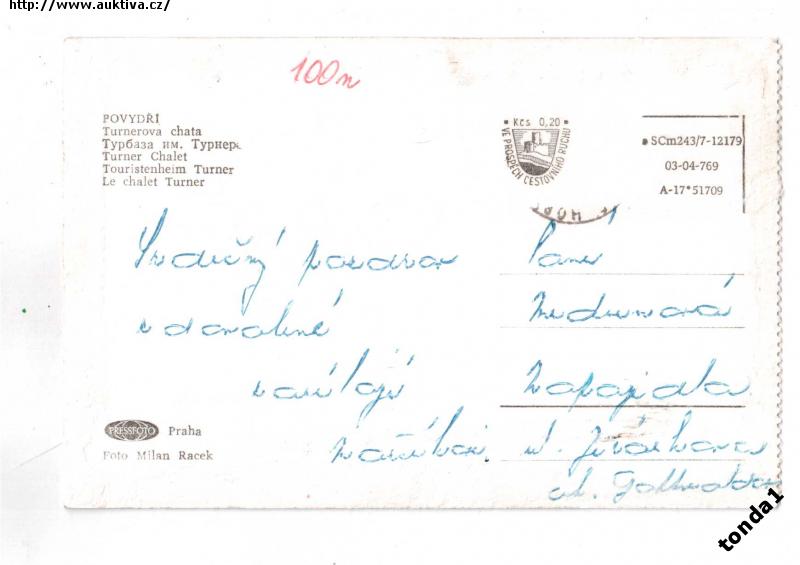 http://www.auktiva.cz/
100n
POVYDŘÍ
Turnerova chata
Турбаза им. Турнера
Turner Chalet
Touristenheim Turner
Le chalet Turner
Kčs 0,20
VE PROSPĚCH CESTOVNÍHO RUCHU
SCm243/7-12179
03-04-769
A-17*51709
Srdečný pozdrav
z dovolené
zasílají
Paní
Napajedla
ul.
ok. Gottwaldov
PRESSFOTO Praha
Foto Milan Racek
tonda1